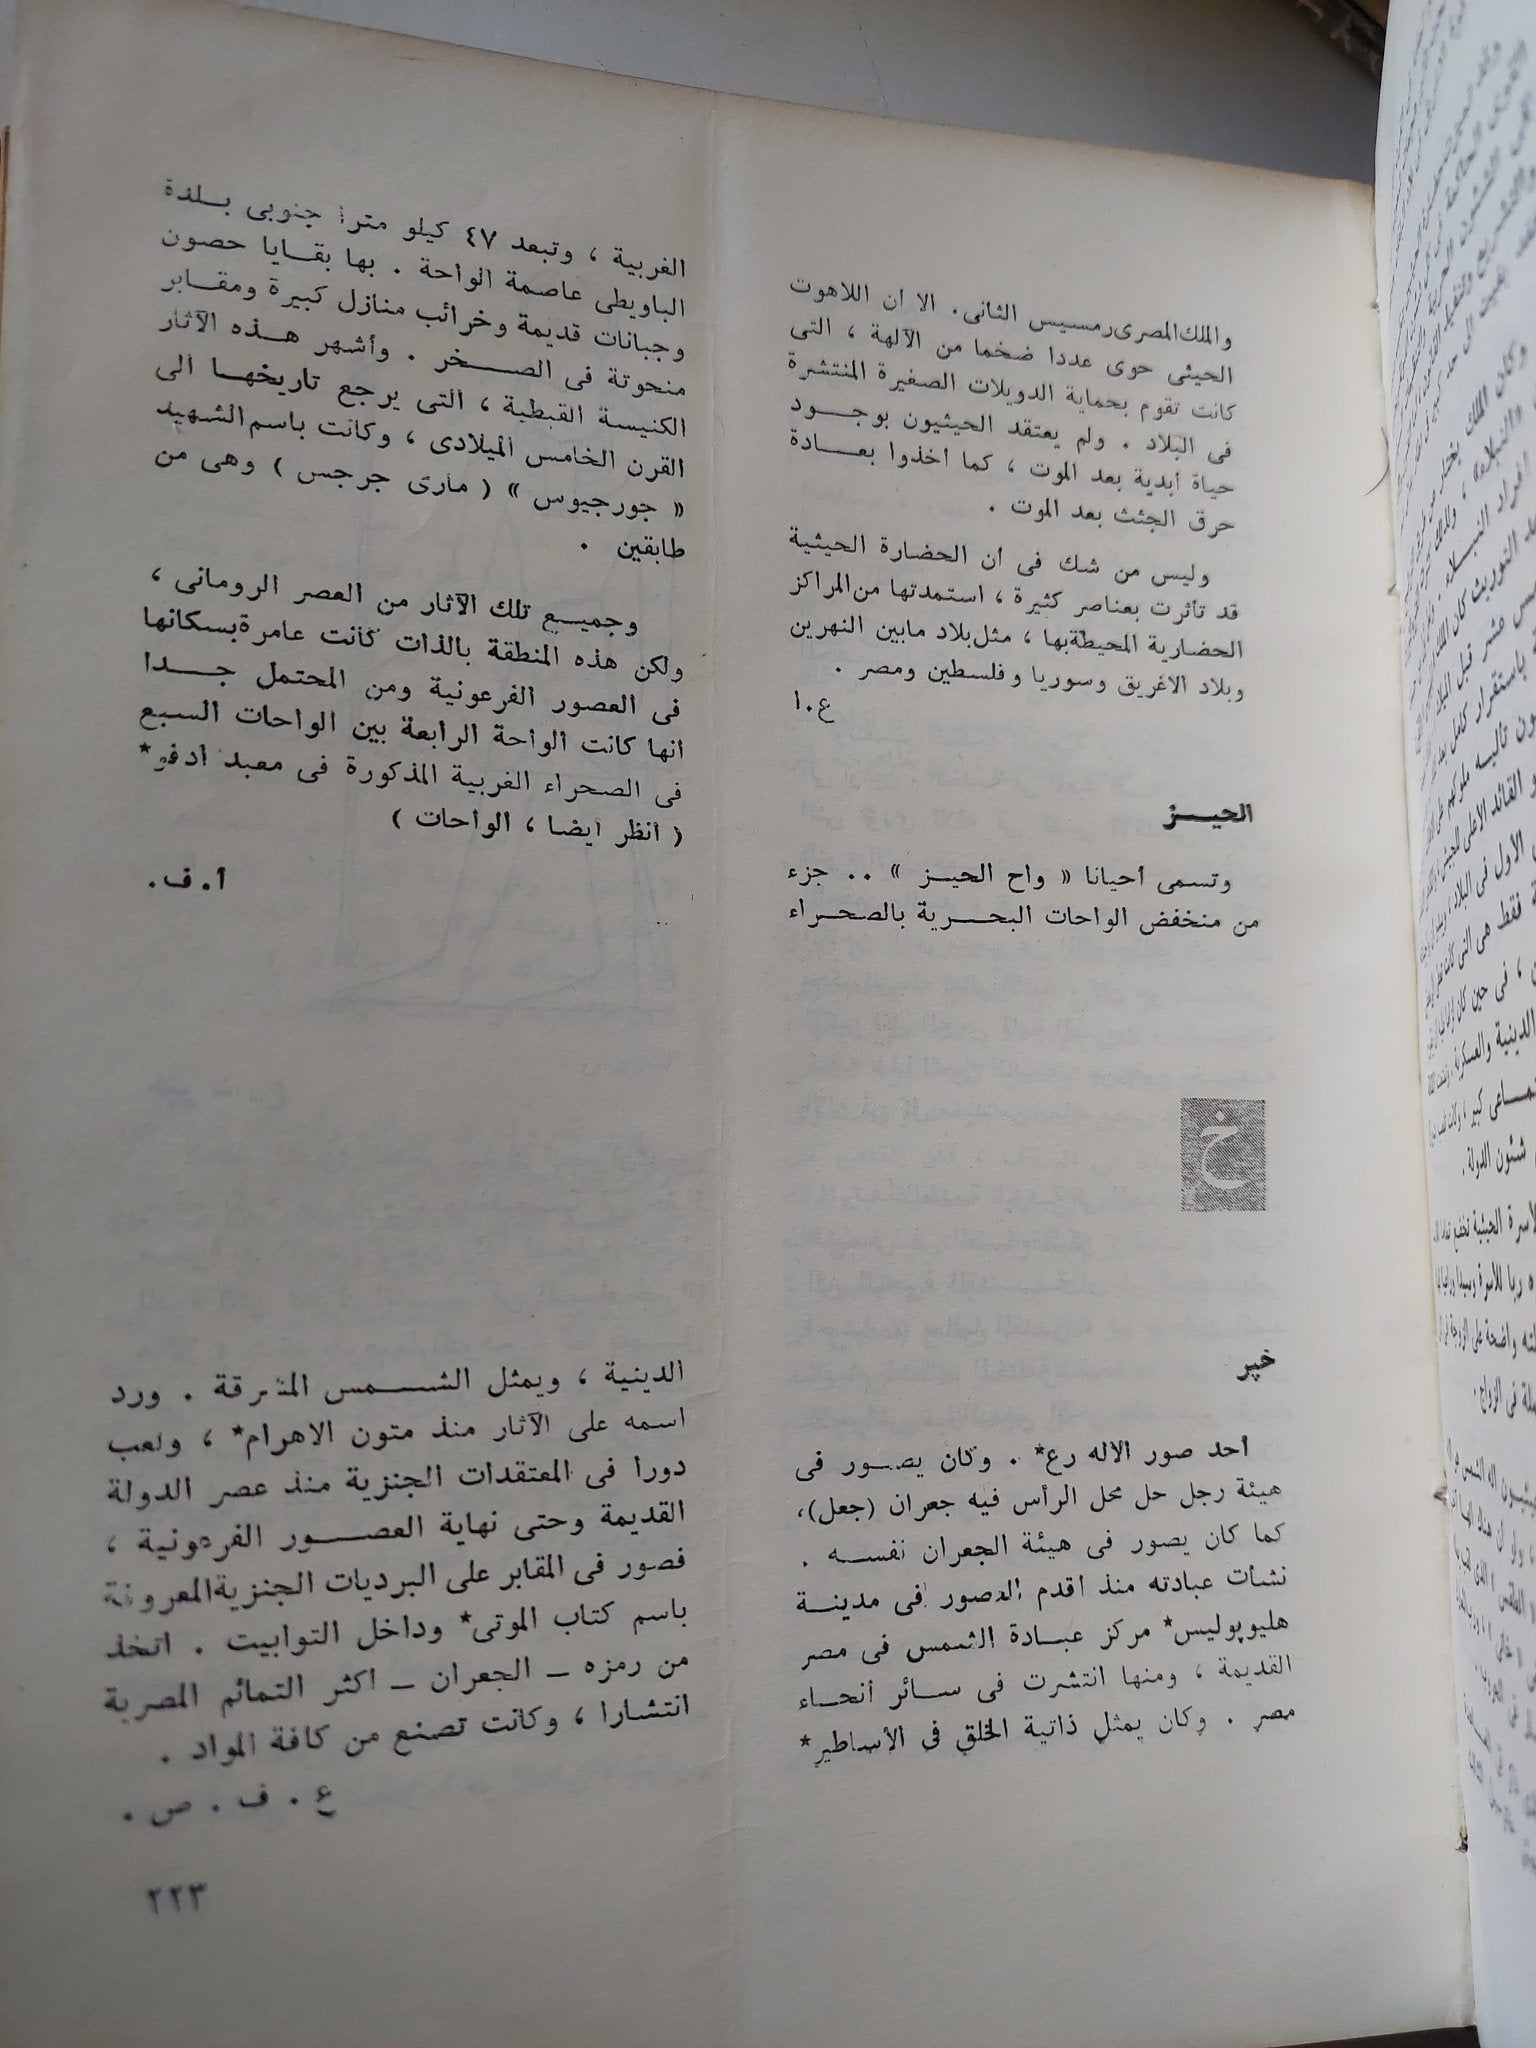 والملك المصرى رمسيس الثانى. الا ان اللاهوت
الحيثى حوى عددا ضخما من الآلهة ، التى
كانت تقوم بحماية الدويلات الصغيرة المنتشرة
فى البلاد . ولم يعتقد الحيثيون بوجـــود
حياة أبدية بعد الموت ، كما أخذوا بعـــادة
حرق الجثث بعد الموت .
وليس من شك فى أن الحضارة الحيثية
قد تأثرت بعناصر كثيرة ، استمدتها من المراكز
الحضارية المحيطة بها ، مثل بلاد مابين النهرين
وبلاد الاغريق وسوريا وفلسطين ومصر .
ع.أ
الحيـــز
وتسمى أحيانا « واح الحيـز » .. جزء
من منخفض الواحات البحـرية بالصحـراء
الغربية ، وتبعد ٤٧ كيلو مترا جنوبى بـلدة
الباويطى عاصمة الواحة . بها بقـايا حصون
وجبانات قديمة وخرائب منازل كبيرة ومقـابر
منحوتة فى الصـــخر . وأشهر هـذه الآثار
الكنيسة القبطية ، التى يرجع تاريخهـا الى
القرن الخامس الميلادى ، وكانت باسم الشهيد
« جورجيوس » ( مارى جرجس ) وهى من
طابقين .
وجميـع تلك الآثار من العصر الرومانى ،
ولكن هذه المنطقة بالذات كانت عامرة بسكانها
فى العصور الفرعونية ومن المحتمل جـــدا
انها كانت الواحة الرابعة بين الواحات السبع
فى الصحراء الغربية المذكورة فى معبد ادفو*
( أنظر أيضا ، الواحات )
أ. ف.
خ
خپر
أحد صور الاله رع* . وكان يصـور فى
هيئة رجل حل محل الرأس فيه جعران (جعل)،
كما كان يصور فى هيئة الجعران نفســه .
نشأت عبادته منذ أقدم العصور فى مدينـة
هليوپوليس* مركز عبـادة الشمس فى مصر
القديمة ، ومنها انتشرت فى سـائر أنحـاء
مصر . وكان يمثل ذاتية الخلق فى الأساطير*
الدينية ، ويمثل الشـــمس المشرقة . ورد
اسمه على الآثار منذ متون الاهرام* ، ولعب
دورا فى المعتقدات الجنزية منذ عصر الدولة
القديمة وحتى نهاية العصـــور الفرعونية ،
فصور فى المقابر على البرديات الجنزية المعروفة
باسم كتاب الموتى* وداخل التوابيت . اتخذ
من رمزه ــ الجعران ــ أكثر التمائم المصرية
انتشارا ، وكانت تصنع من كافة المواد .
ع . ف . ص .
٢٢٣